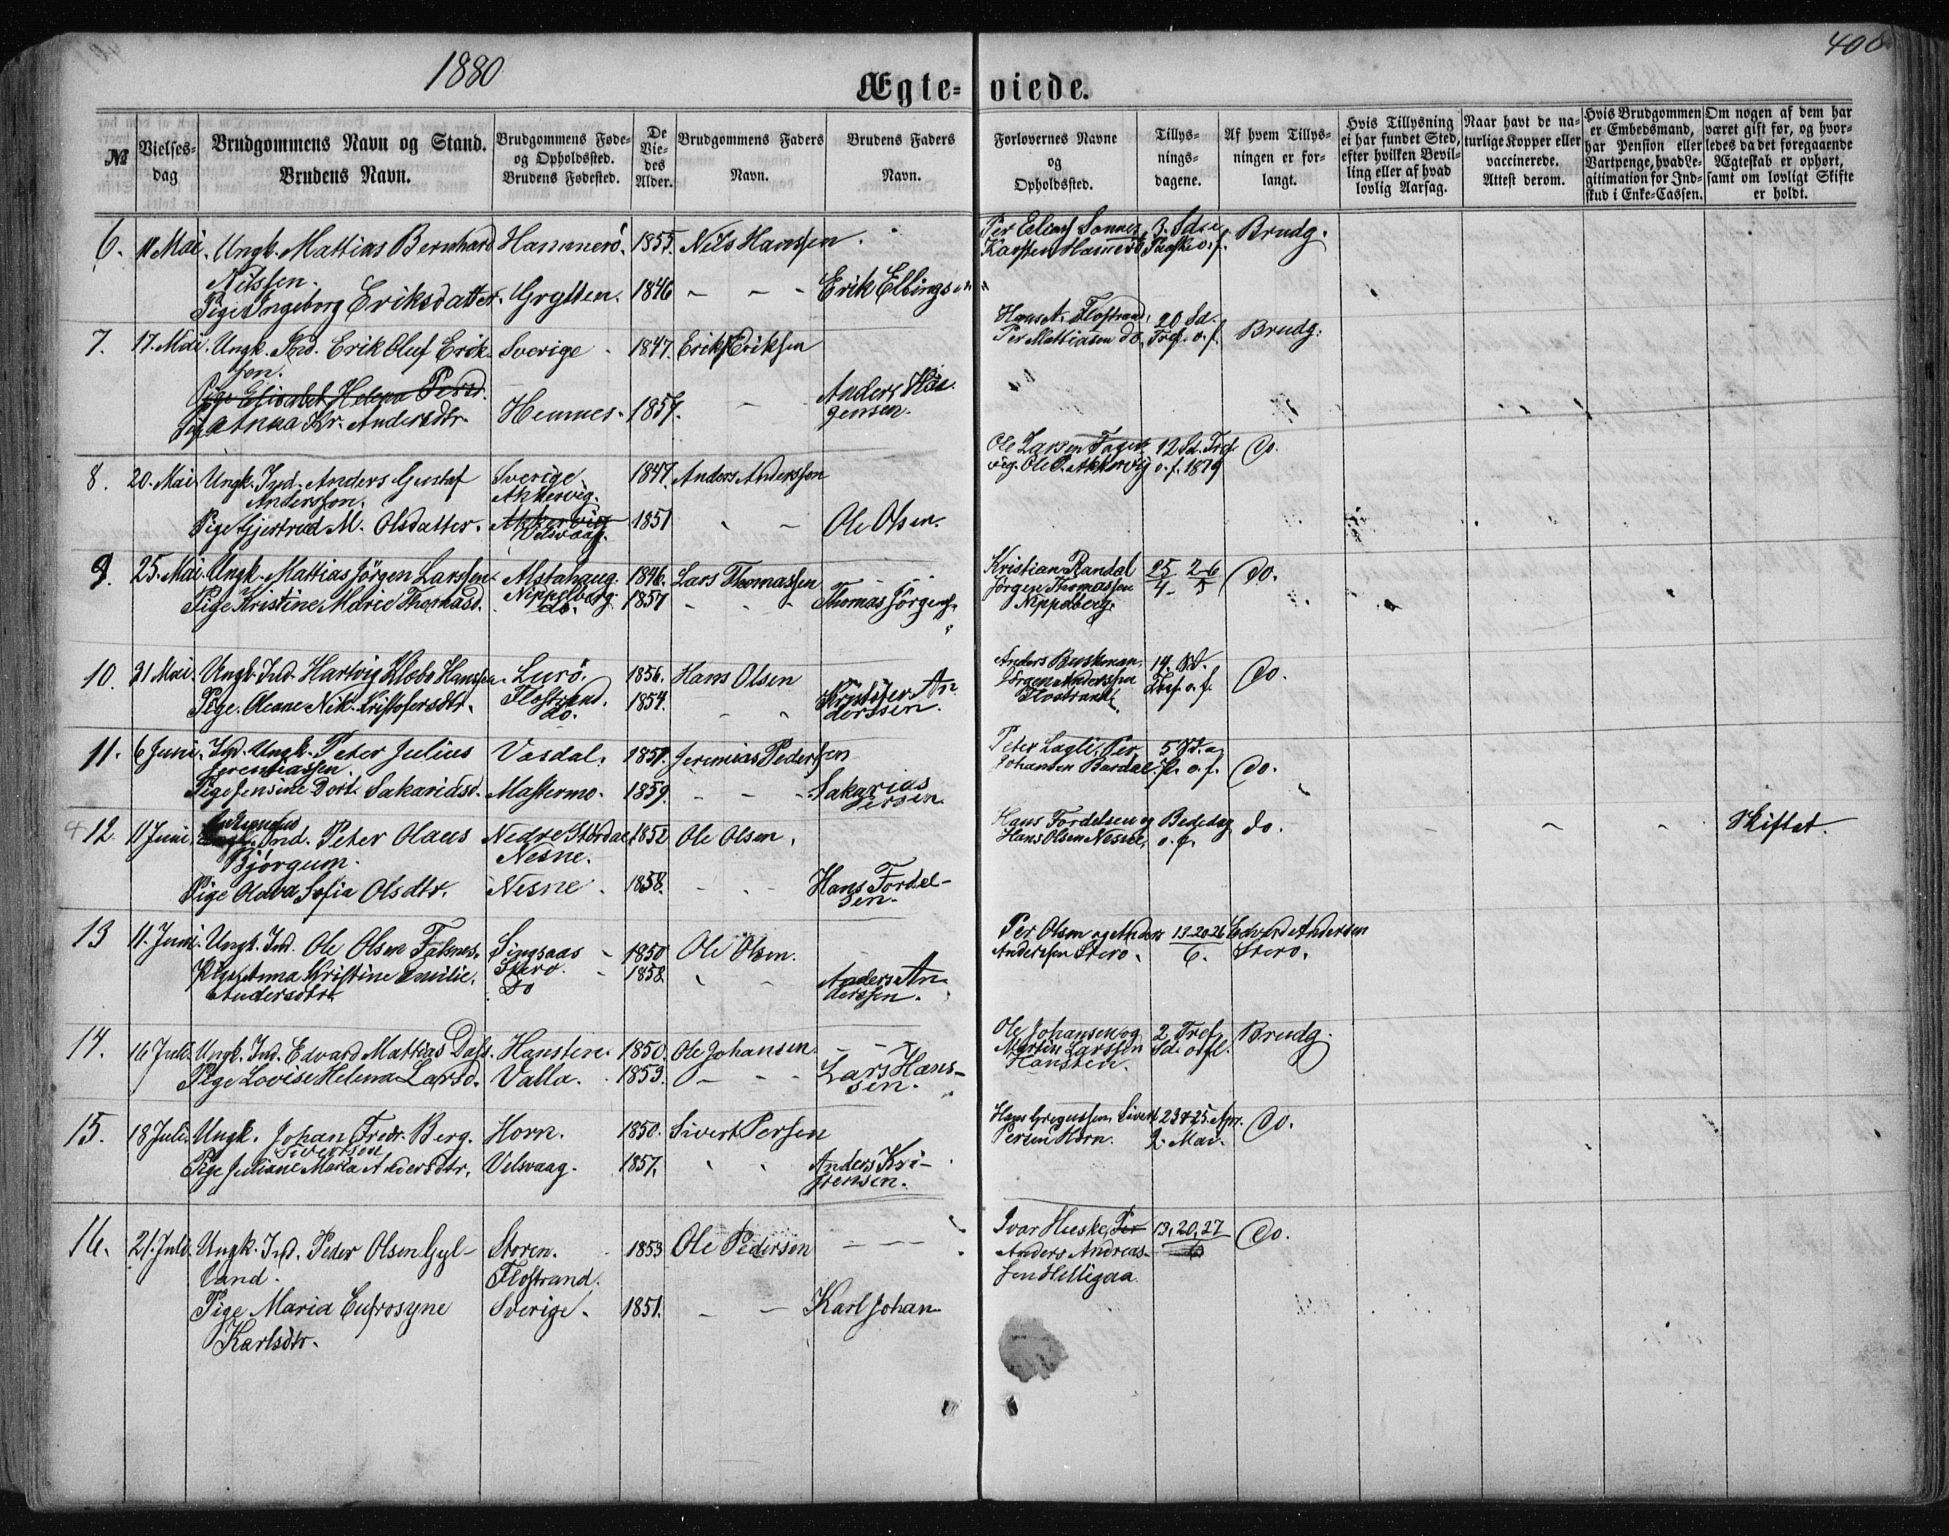 1880
408
Ægte- viede.
№
Vielses-dag
Brudgommens Navn og Stand.
Brudens Navn.
Brudgommens Føde- og Opholdssted.
Brudens Fødested.
De Viedes Alder.
Brudgommens Faders Navn.
Brudens Faders Navn.
Forlovernes Navne og Opholdssted.
Tillysningsdagene.
Af hvem Tillysningen er forlangt.
Hvis Tillysning ei har fundet Sted, efter hvilken Bevilling eller af hvad lovlig Aarsag.
Naar havt de naturlige Kopper eller vaccinerede. Attest derom.
Hvis Brudgommen er Embedsmand, har Pension eller Vartpenge, hvad Legitimation for Indskud i Enke-Cassen.
Om nogen af dem har været gift før, og hvorledes da det foregaaende Ægteskab er ophørt, samt om lovligt Skifte er holdt.
6. 11 Mai. Ungk. Mattias Bernhard Hammerö. 1855. Nils Hanssen. 3. Sd. e. Brudg.
Nilssen. Paaske o. f.
Pige Ingeborg Eriksdatter. Grytten. 1846 – – – Erik Ellingsen
7. 17. Mai. Ungk. Ind. Erik Oluf Erik- Sverige 1847. Erik Eriksen Hans A. Flostrand, 20 Sd. Brudg.
sen. Per Mattiasen do. Tref. o. f.
Pige Elisabet Helena Persd.
Pige Anna Kr. Andersdtr. Hemnes. 1857. – Anders Haa-
gensen.
8. 20. Mai Ungk. Ind. Anders Gustaf Sverige. 1847. Anders Andersson Ole Larsen 12 Sd. Tref. Do.
Anderssen. Akkervig. vig. Ole P. Akkervig o. f. 1879
Pige Gjertrud M. Olsdatter. Akkervig 1851 – Ole Olsen.
Vilsvaag.
9. 25. Mai Ungk. Mattias Jörgen Larssen Alstahaug. 1846. Lars Thomassen Kristian Randal 25/4 2-6/5 Do.
Nippelbærg. Jörgen Thomassen
Pige Kristine Marie Thomasd. do. 1857 – – – Thomas Jörgens. Nippelberg.
10. 31 Mai. Ungk. Ind. Hartvig Klebo Hanssen Lurö. 1856. Hans Olsen Anders Buskman. 14. Sd. Do.
Flostrand. Jörgen Anderssen Tref. o. f.
Pige. Oleane Nik. Kristofersdtr. do. 1854. Kristofer An- Flostrand.
derssen.
11. 6 Juni. Ind. Ungk. Peter Julius Vasdal. 1857. Jeremias Pedersen Peter Lagli, Per 5 Sd. a. Do.
Jeremiassen. Johansen Bardal. o. f.
Pige Jensine Dort. Sakariasd. Mastermo. 1859. – – – Sakarias
Persen
12. 11 Juni. Ind. Peter Olaus Nedre Stördal 1852 Ole Olsen. Hans Fordelsen og Bededag do. Skiftet.
Bjørgum. Nesne. Hans Olsen Nesne. o. f.
Pige Oldva Sofia Olsdtr. Nesne. 1858. Hans Fordel-
sen.
13 11. Juni. Ungk. Ind. Ole Olsen Falnes. Singsaas 1850 Ole Olsen. Per Olsen og Anders 13-20-26/6. Edvard Andersen
Stero. Anderssen Stero. Stero.
Pige Anna Kristine Emilie. Do 1858 Anders An-
Andersdtr. derssen.
14. 16 Juli. Ungk. Ind. Edvard Mattias Dass. Hansten. 1850. Ole Johansen. Ole Johansen og 2 Tref. Brudg.
Morten Larssen Sd. o. f.
Pige Lovise Helena Larsd. Valla. 1853. – Lars Hans- Hansten.
sen.
15. 18 Juli. Ungk. Johan Fredr. Berg. Horn. 1850. Sivert Persen Hans Gregussen, Sivert 23 & 25. Apr. Do.
Sivertsen Persen Horn. 2. Mai.
Pige Juliane Maria Andersdtr. Vilsvaag. 1857. Anders Kri-
stensen.
16. 21. Juli. Ungk. Ind. Peder Olsen Gyl- Storen. 1853 Ole Pedersen Ivar Hieske, Per 13, 20, 27/6 Do.
land. Flostrand. Anders Andreas-
Pige Maria Eufrosyne Sverige. 1851. – – Karl Johan sen Helligaa
Karlsdtr.